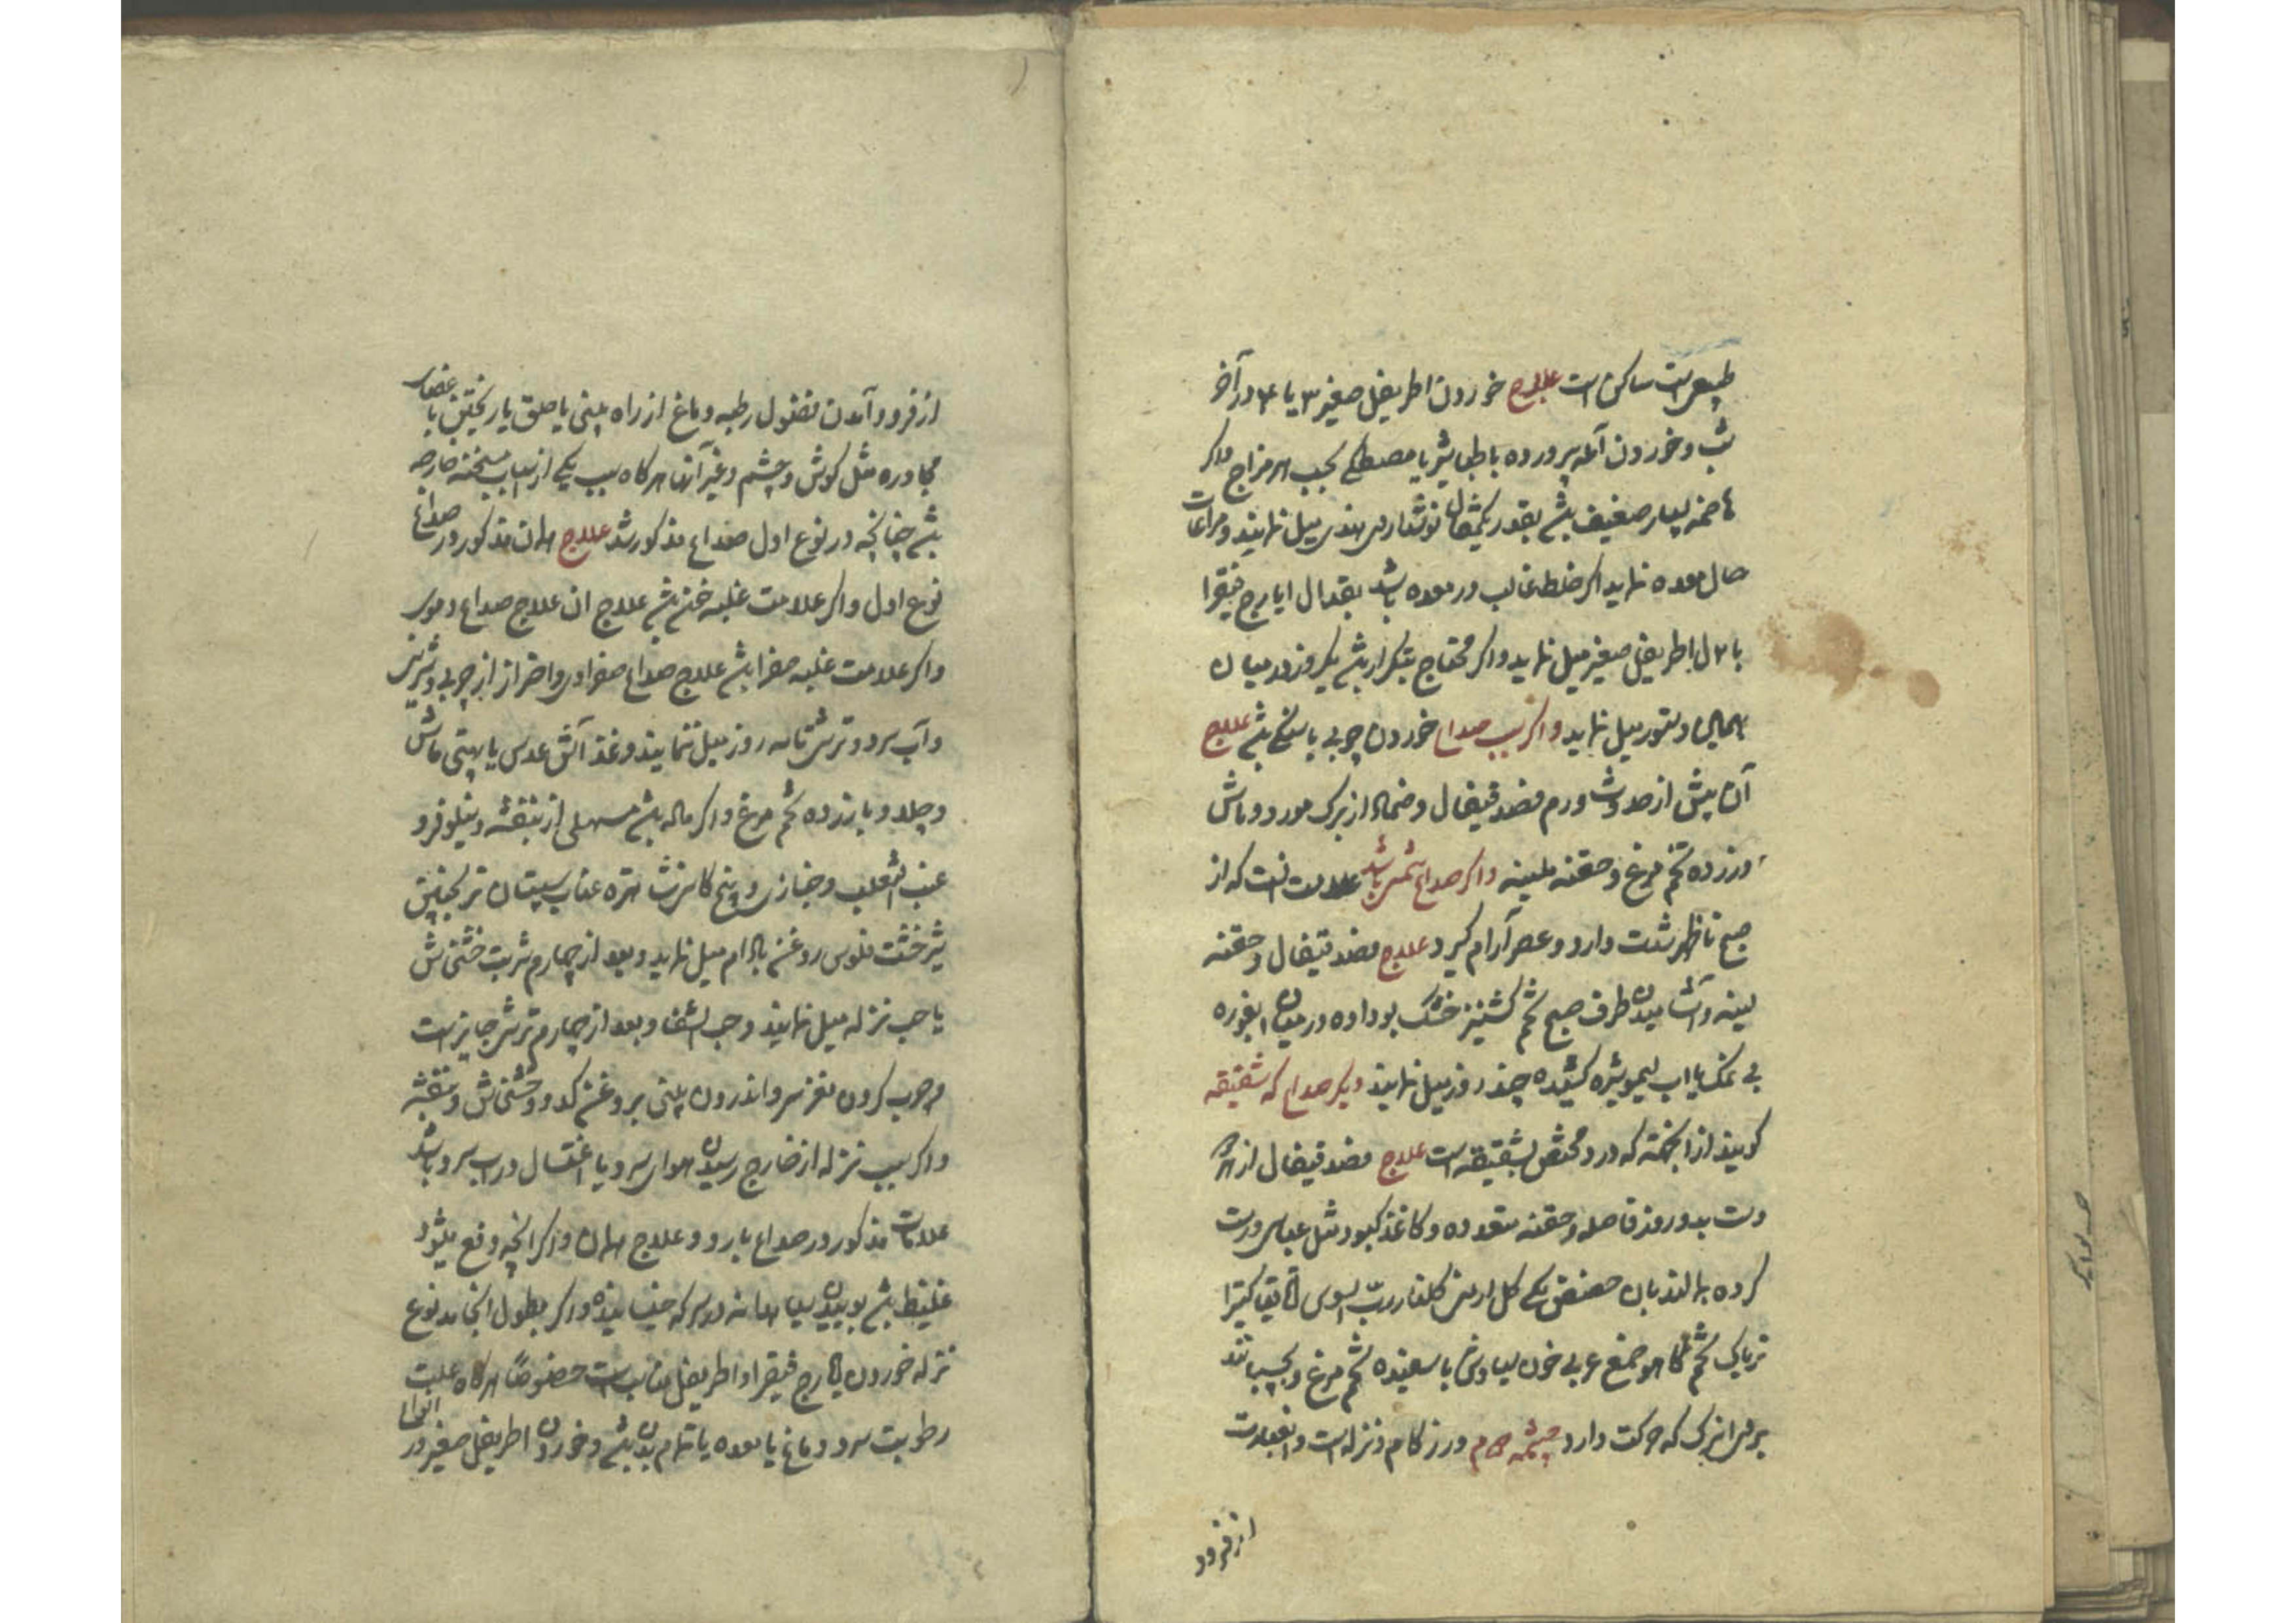 طبیعت ساکن است علاج خوردن اطریفل صغیر ۳ یا ۴ در آخر
شب و خوردن آمله پرورده با طباشیر یا مصطکی بحسب هر مزاج واکر
هاضمه بسیار ضعیف بشد بقدر یکمثقال نوشداروی هندی میل نمایند و مراعات
حال معده نماید اکر خلط غالب در معده باشد بقدال ایارج فیقرا
با ۲ ل اطریفل صغیر میل نماید و اکر محتاج بتکرار بشد یکروز در میان
بهمان دستور میل نماید و اکر سبب صداع خوردن چوبی یا سنکی بشد علاج
آن پیش از حدوث ورم فصد قیفال و ضماد از برک مورد و ماش
و زرده تخم مرغ و حقنه ملینه و اکر صداع شمسی باشد علامت آنست که از
صبح تا ظهر شدت دارد و عصر آرام کیرد علاج فصد قیفال و حقنه
لینه و آشامیدن طرف صبح تخم کشنیز خشک بو داده در میان ابغوره
بی نمک یا اب لیمو شیره کشیده چند روز میل نمایند دیکر صداع که شقیقه
کویند از انجهته که درد مختص بشقیقه است علاج فصد قیفال از هر
دست بدو روز فاصله و حقنه متعدده و کاغذ کبود مثل عباسی درست
کرده بمالند بان حضض مکی کل ارمنی کلنار رب السوس اقاقیا کتیرا
تریاک تخم کاهو صمغ عربی خون سیاوش با سفیده تخم مرغ و بچسبانند
بر شرانی که حرکت دارد چشمه چهارم در زکام و نزله است و انعبارت
از فرود
از فرود آمدن فضول رطبه دماغ از راه بینی یا حلق یا ریختن باعضای
مجاوره مثل کوش و چشم و غیر آنها هرکاه بسبب یکی از اسباب مسخنه خارجه
بشد چنانچه در نوع اول صداع مذکور شد علاج همان مذکور در صداع
نوع اول و اکر علامت غلبه خون بشد علاج ان علاج صداع دموی
و اکر علامت غلبه صفرا بشد علاج صداع صفراوی و احتراز از چربی و شیرینی
و آب سرد و ترشی تا سه روز میل ننمایند و غذا آش عدس یا بپتی ماش
و چلاو با زرده تخم مرغ و اکر ماده بشد مسهلی از بنفشه و نیلوفر و
عنب الثعلب و خبازی و بیخ کاسنی شاهتره عناب سپستان ترنجبین
شیرخشت فلوس روغن بادام میل نماید و بعد از چهارم شربت خشخاش
یا حب نزله میل نمایند و حب الشفا و بعد از چهارم ترشی جایز است
و چرب کردن مغز سر و اندرون بینی بروغن کدو و خشخاش و بنفشه
و اکر سبب نزله از خارج رسیدن هوای سرد یا اغتسال در آب سرد باشد
علامات مذکور در صداع بارد و علاج همان و اکر انچه دفع میشود
غلیظ بشد بوییدن سیاهدانه در سرکه خیسانیده و اکر بطول انجامد نوع
نزله خوردن ایارج فیقرا و اطریفل مناسبست خصوصا هرکاه علت
رطوبت سرد دماغ یا معده یا تمام بدن بشد و خوردن اطریفل صغیر در